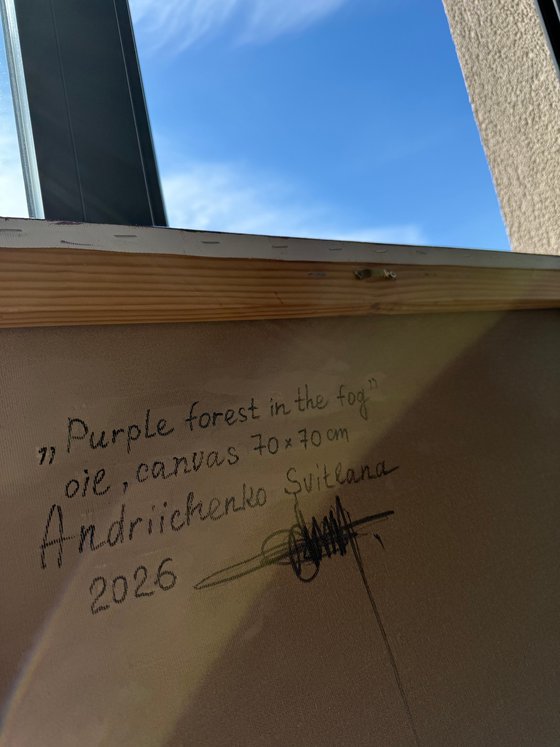 „Purple forest in the fog”
oie, canvas 70×70 cm
Andriichenko Svitlana
2026